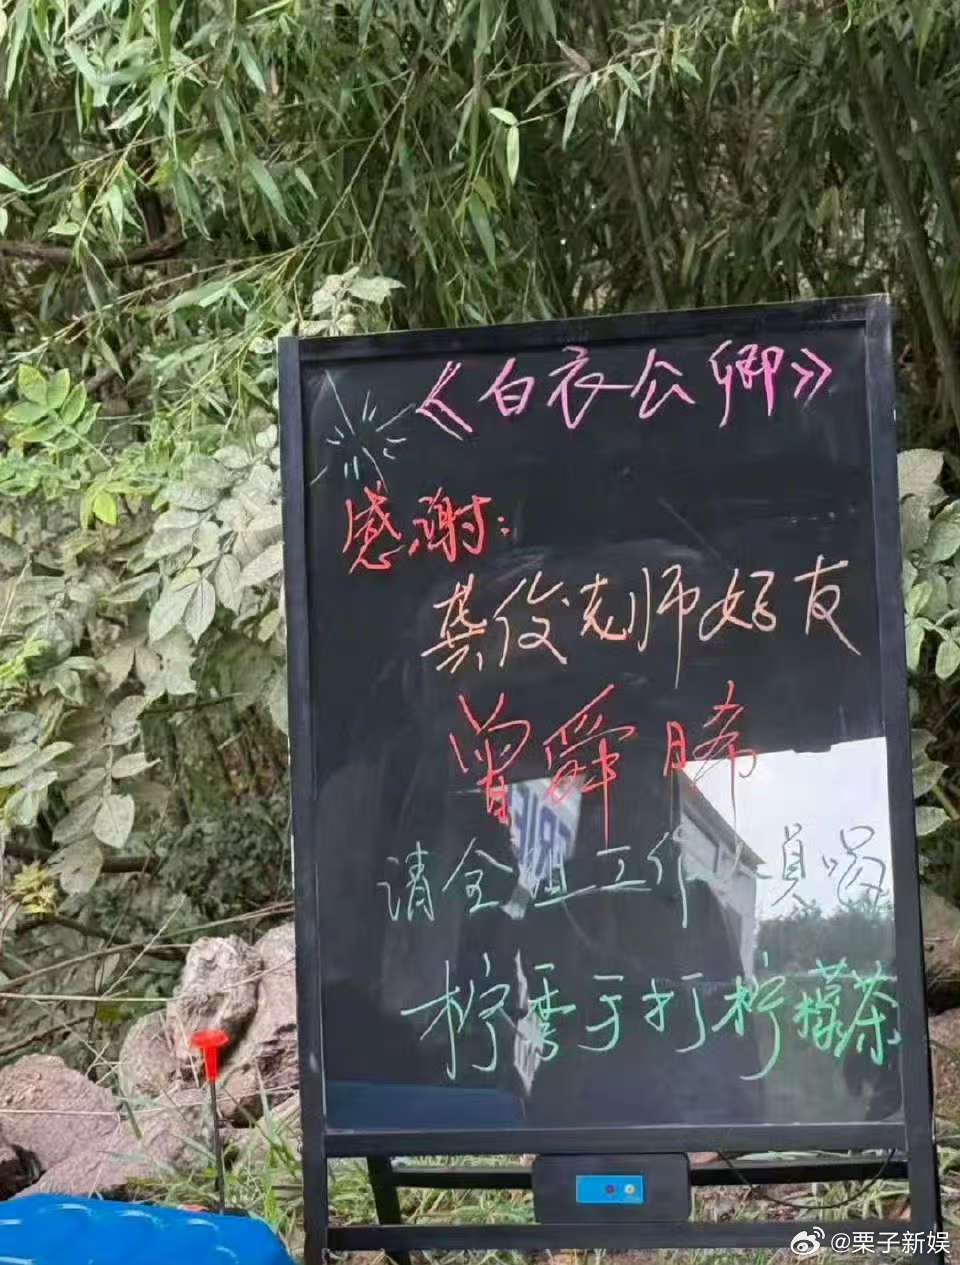 《白衣公卿》
感谢:
龚俊老师好友
曾舜晞
请全组工作人员喝
柠季手打柠檬茶
@栗子新娱